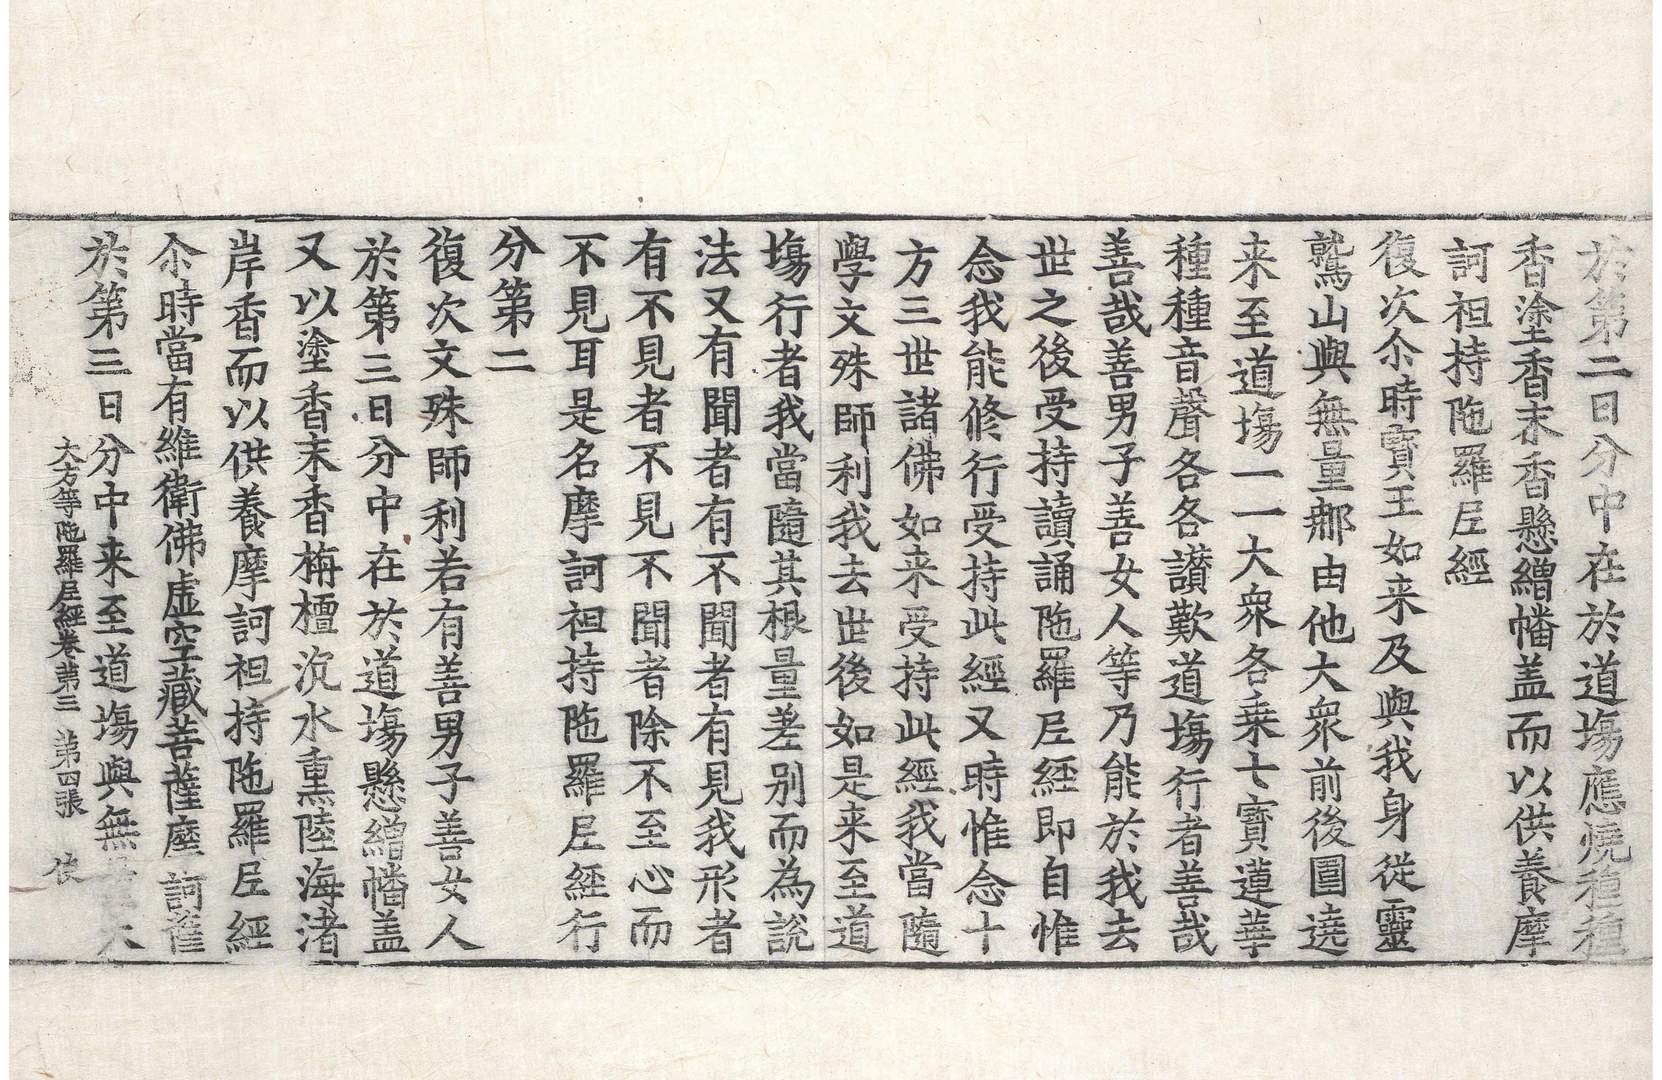 於第二日分中在於道場應燒種種
香塗香末香懸繒幡盖而以供養摩
訶袒持陁羅尼經
復次尒時寶王如来及與我身從靈
鷲山與無量那由他大衆前後圍遶
来至道場一一大衆各乗七寶蓮華
種種音聲各各讃歎道場行者善哉
善哉善男子善女人等乃能於我去
世之後受持讀誦陁羅尼經即自惟
念我能修行受持此經又時惟念十
方三世諸佛如来受持此經我當隨
學文殊師利我去世後如是来至道
場行者我當隨其根量差別而為說
法又有聞者有不聞者有見我形者
有不見者不見不聞者除不至心而
不見耳是名摩訶袒持陁羅尼經行
分第二
復次文殊師利若有善男子善女人
於第三日分中在於道場懸繒幡盖
又以塗香末香栴檀沉水熏陸海渚
岸香而以供養摩訶袒持陁羅尼經
尒時當有維衛佛虛空藏菩薩摩訶薩
於第三日分中来至道場與無量大
大方等陁羅尼經卷第三 第四張